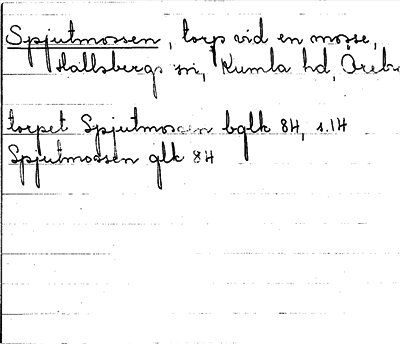 Spjutmossen, torp vid en mosse,
Hallsbergs sn, Kumla hd, Örebro
torpet Spjutmossen bglk 8H, s.14
Spjutmossen glk 8H